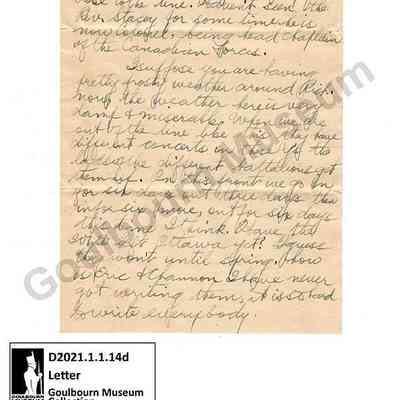 to the line. I haven't seen the
Rev. Stacey for some time he is
now colonel, being head Chaplain
of the Canadian Forces.
I suppose you are having
pretty frosty weather around Rich.
now, the weather here is very
damp & miserable. When we are
out of the line like this they have
different concerts on
different Battalions get
them up. In this front we go in
for six days
six more, out for six days
this time I think. I
Ottawa yet? I guess
won't until spring. How
is Eric & Channon I have never
got writing them, it is so hard
to write everybody.
Goulbourn Museum
Goulbourn Museum
D2021.1.1.14d
Letter
Goulbourn Museum
Collection
GOULBOURN
MUSEUM